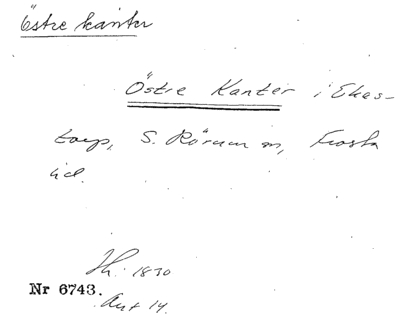 Östre kanter
Östre Kanter i Ekas-
torp, S. Rörum sn, Frosta
hd.
Hh. 1830
Nr 6743.
Ant 14.